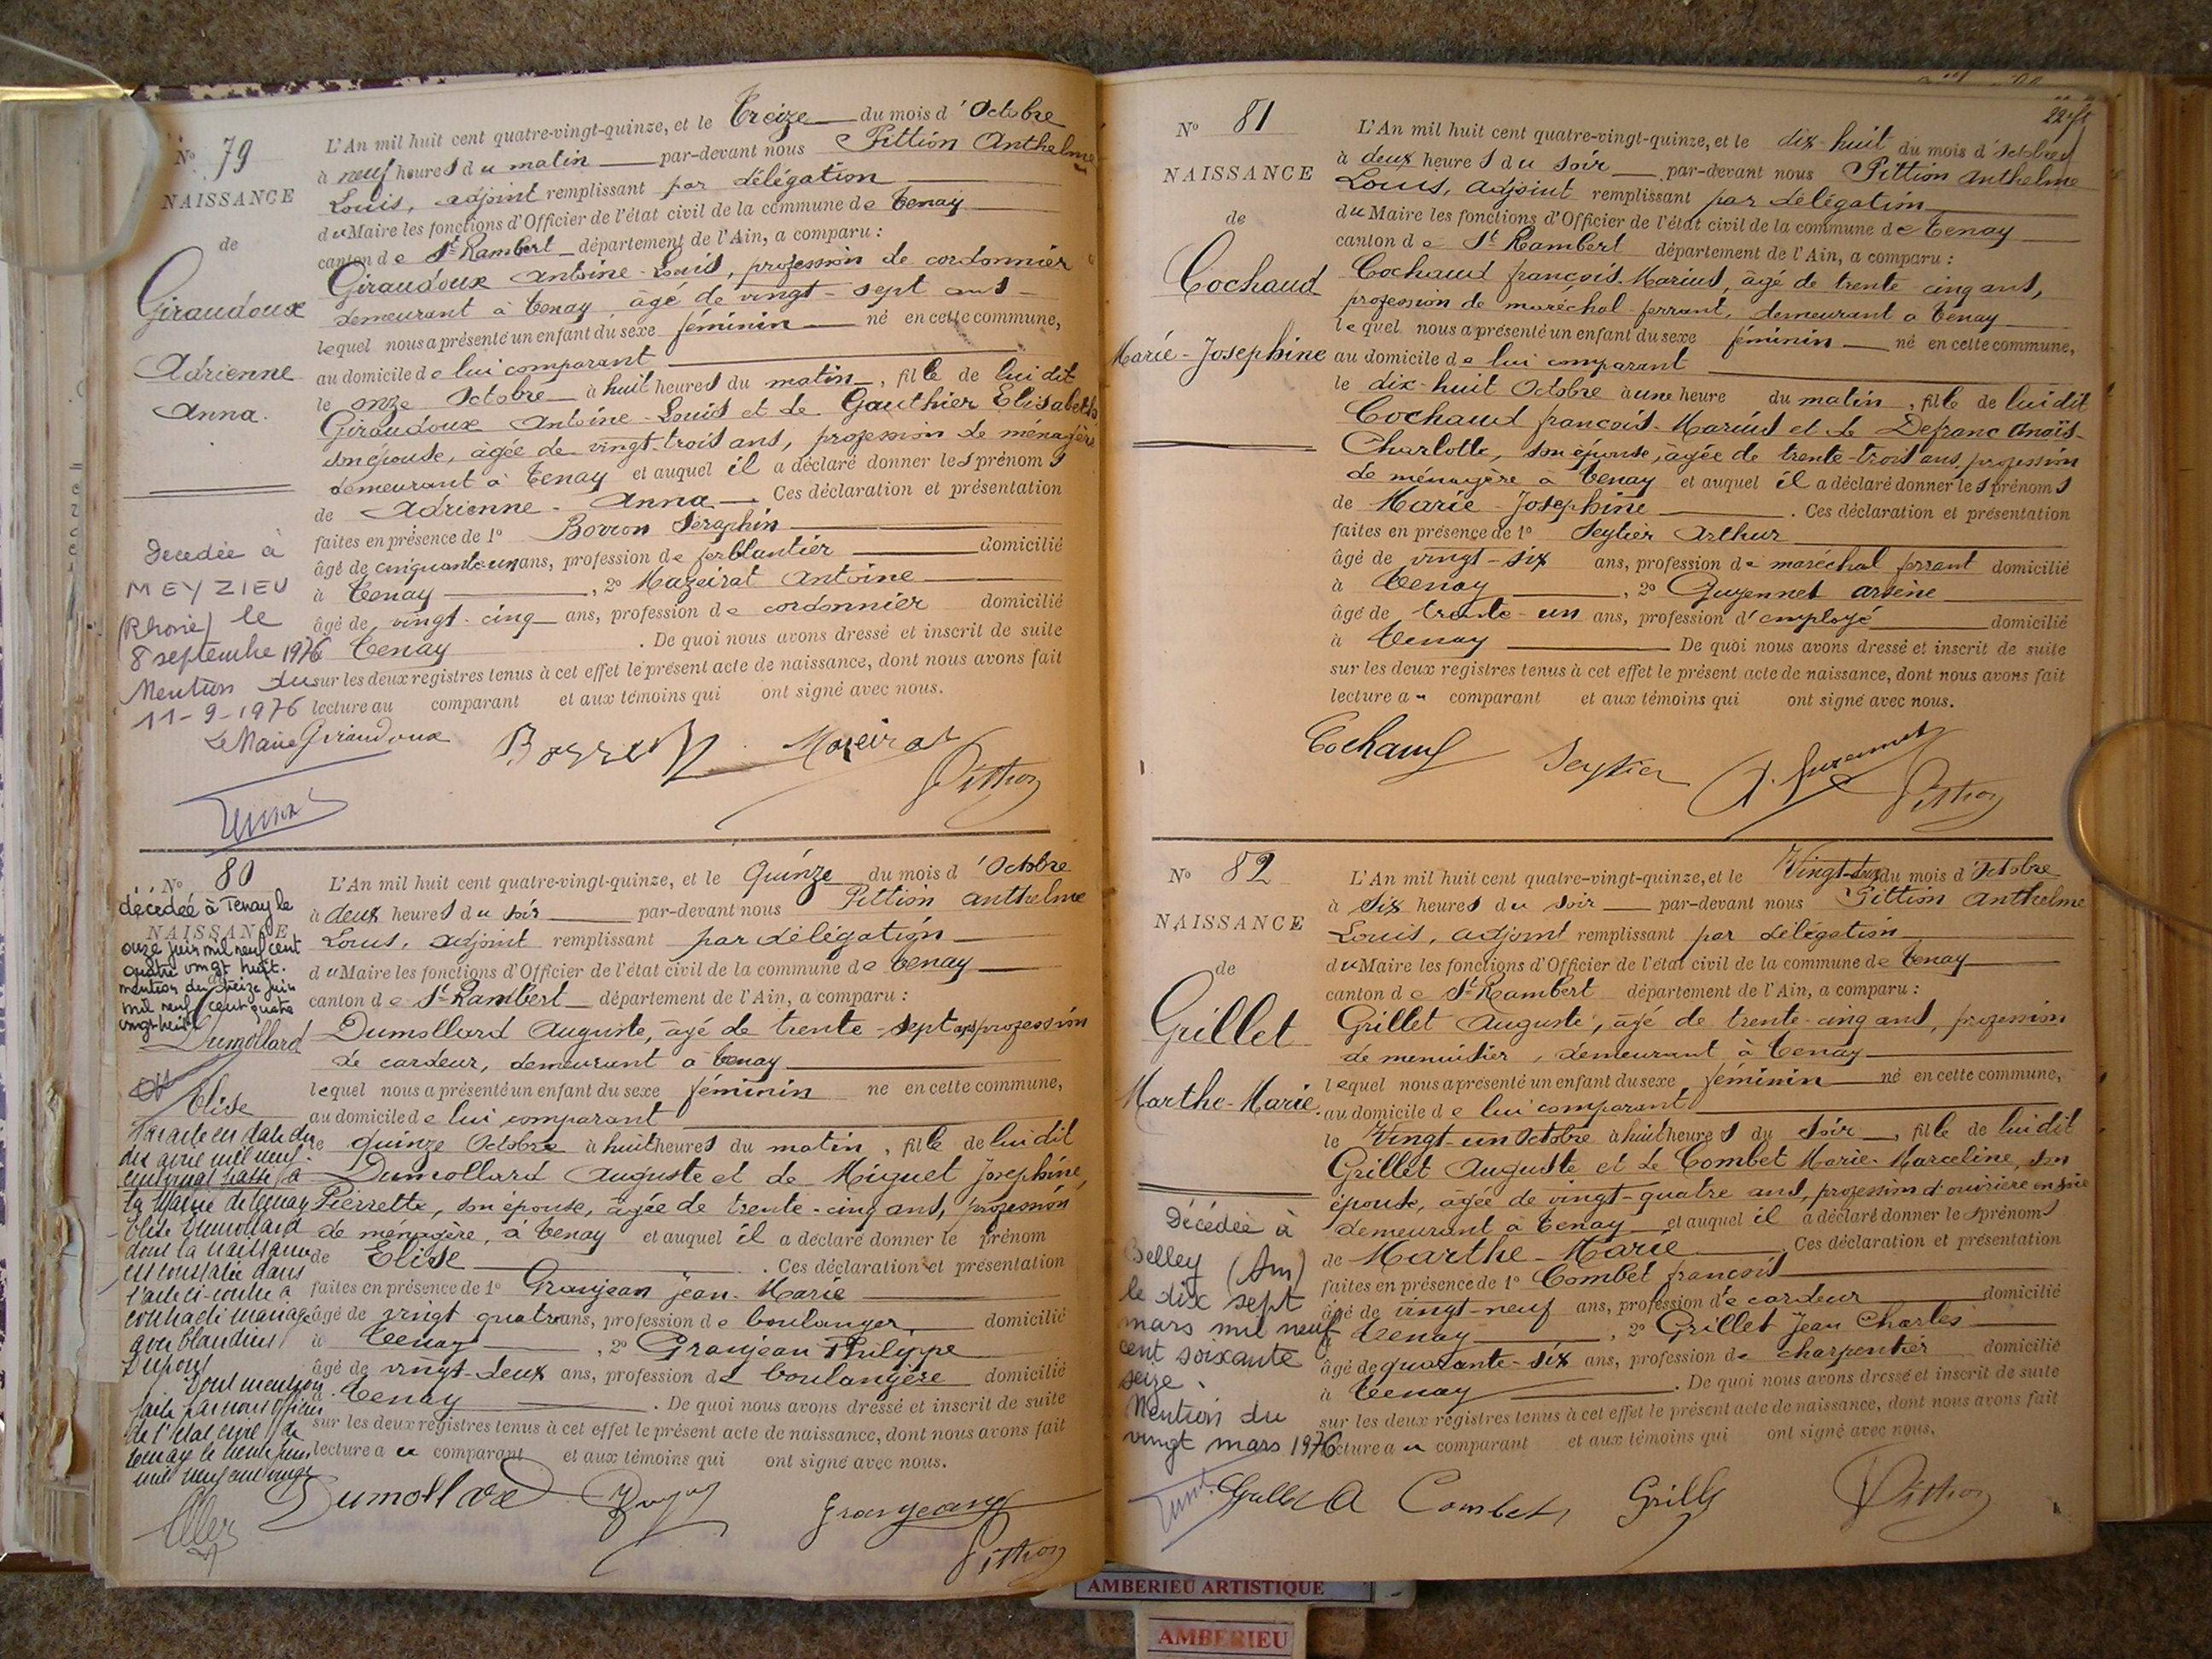 No 79
NAISSANCE
de
Giraudoux
Adrienne
Anna.
Decedée à
MEYZIEU
(Rhone) le
8 septembre 1976
Mention du
11-9-1976
Le Maire
L'An mil huit cent quatre-vingt-quinze, et le Treize du mois d'Octobre
à neuf heures du matin par-devant nous Pittion Anthelme
Louis, adjoint remplissant par délégation
du Maire les fonctions d'Officier de l'état civil de la commune de Tenay
canton de St Rambert département de l'Ain, a comparu :
Giraudoux Antoine-Louis, profession de cordonnier
demeurant à Tenay âgé de vingt-sept ans
lequel nous a présenté un enfant du sexe féminin né en cette commune,
au domicile de lui comparant
le onze Octobre à huit heures du matin, fille de lui dit
Giraudoux Antoine-Louis et de Gauthier Elisabeth
son épouse, âgée de vingt-trois ans, profession de ménagère
demeurant à Tenay et auquel il a déclaré donner les prénoms
de Adrienne-Anna. Ces déclaration et présentation
faites en présence de 1o Borron Séraphin
âgé de cinquante-un ans, profession de ferblantier domicilié
à Tenay, 2o Mazeirat Antoine
âgé de vingt-cinq ans, profession de cordonnier domicilié
Tenay. De quoi nous avons dressé et inscrit de suite
sur les deux registres tenus à cet effet le présent acte de naissance, dont nous avons fait
lecture au comparant et aux témoins qui ont signé avec nous.
Giraudoux Mazeirat
Pittion
No 80
décédée à Tenay le
NAISSANCE
onze juin mil neuf cent
quatre vingt huit.
mention du treize juin
mil neuf cent quatre
vingt huit
Dumollard
Elise
Par acte en date du
dix avril mil neuf
cent passé à
la Mairie de Tenay
Elise Dumollard
dont la naissance
est constatée dans
l'acte ci-contre a
contracté mariage
avec Claudius
Dupont
Dont mention
faite par nous officier
de l'état civil de
Tenay le
mil neuf cent vingt
L'An mil huit cent quatre-vingt-quinze, et le Quinze du mois d'Octobre
à deux heures du soir par-devant nous Pittion Anthelme
Louis, adjoint remplissant par délégation
du Maire les fonctions d'Officier de l'état civil de la commune de Tenay
canton de St-Rambert département de l'Ain, a comparu :
Dumollard Auguste, âgé de trente-sept ans profession
de cardeur, demeurant à Tenay
lequel nous a présenté un enfant du sexe féminin né en cette commune,
au domicile de lui comparant
le quinze Octobre à huit heures du matin, fille de lui dit
Dumollard Auguste et de Miguet Josephine,
Pierrette, son épouse, âgée de trente-cinq ans, profession
de ménagère, à Tenay et auquel il a déclaré donner le prénom
de Elise. Ces déclaration et présentation
faites en présence de 1o Granjean Jean-Marie
âgé de vingt quatre ans, profession de boulanger domicilié
à Tenay, 2o Granjean Philippe
âgé de vingt-deux ans, profession de boulangère domicilié
à Tenay. De quoi nous avons dressé et inscrit de suite
sur les deux registres tenus à cet effet le présent acte de naissance, dont nous avons fait
lecture au comparant et aux témoins qui ont signé avec nous.
Dumollard Grangeand
Pittion
No 81
NAISSANCE
de
Cochaud
Marie-Josephine
L'An mil huit cent quatre-vingt-quinze, et le dix-huit du mois d'Octobre
à deux heures du soir par-devant nous Pittion Anthelme
Louis, adjoint remplissant par délégation
du Maire les fonctions d'Officier de l'état civil de la commune de Tenay
canton de St Rambert département de l'Ain, a comparu :
Cochaud françois-Marius, âgé de trente cinq ans,
profession de maréchal-ferrant, demeurant à Tenay
lequel nous a présenté un enfant du sexe féminin né en cette commune,
au domicile de lui comparant
le dix-huit Octobre à une heure du matin, fille de lui dit
Cochaud françois-Marius et de Defranc Anaïs-
Charlotte, son épouse, âgée de trente-trois ans, profession
de ménagère à Tenay et auquel il a déclaré donner les prénoms
de Marie-Josephine. Ces déclaration et présentation
faites en présence de 1o Seytier Arthur
âgé de vingt-six ans, profession de maréchal ferrant domicilié
à Tenay, 2o Guyennet arsène
âgé de trente-un ans, profession d'employé domicilié
à Tenay De quoi nous avons dressé et inscrit de suite
sur les deux registres tenus à cet effet le présent acte de naissance, dont nous avons fait
lecture au comparant et aux témoins qui ont signé avec nous.
Cochaud Seytier
Pittion
No 82
NAISSANCE
de
Grillet
Marthe-Marie.
Décédée à
Belley (Ain)
le dix sept
mars mil neuf
cent soixante
seize.
Mention du
vingt mars 1976
L'An mil huit cent quatre-vingt-quinze, et le Vingt-deux du mois d'Octobre
à six heures du soir par-devant nous Pittion Anthelme
Louis, adjoint remplissant par délégation
du Maire les fonctions d'Officier de l'état civil de la commune de Tenay
canton de St Rambert département de l'Ain, a comparu :
Grillet Auguste, âgé de trente-cinq ans, profession
de menuisier, demeurant à Tenay
lequel nous a présenté un enfant du sexe féminin né en cette commune,
au domicile de lui comparant
le Vingt-un Octobre à huit heures du soir, fille de lui dit
Grillet Auguste et de Combet Marie-Marceline, son
épouse, âgée de vingt-quatre ans, profession d'ouvrière en soie
demeurant à Tenay et auquel il a déclaré donner les prénoms
de Marthe-Marie Ces déclaration et présentation
faites en présence de 1o Combet françois
âgé de vingt-neuf ans, profession de cardeur domicilié
Tenay, 2o Grillet Jean Charles
âgé de quarante-six ans, profession de charpentier domicilié
à Tenay. De quoi nous avons dressé et inscrit de suite
sur les deux registres tenus à cet effet le présent acte de naissance, dont nous avons fait
lecture au comparant et aux témoins qui ont signé avec nous.
Grillet A Combet Grillet Pittion
AMBERIEU ARTISTIQUE
AMBERIEU